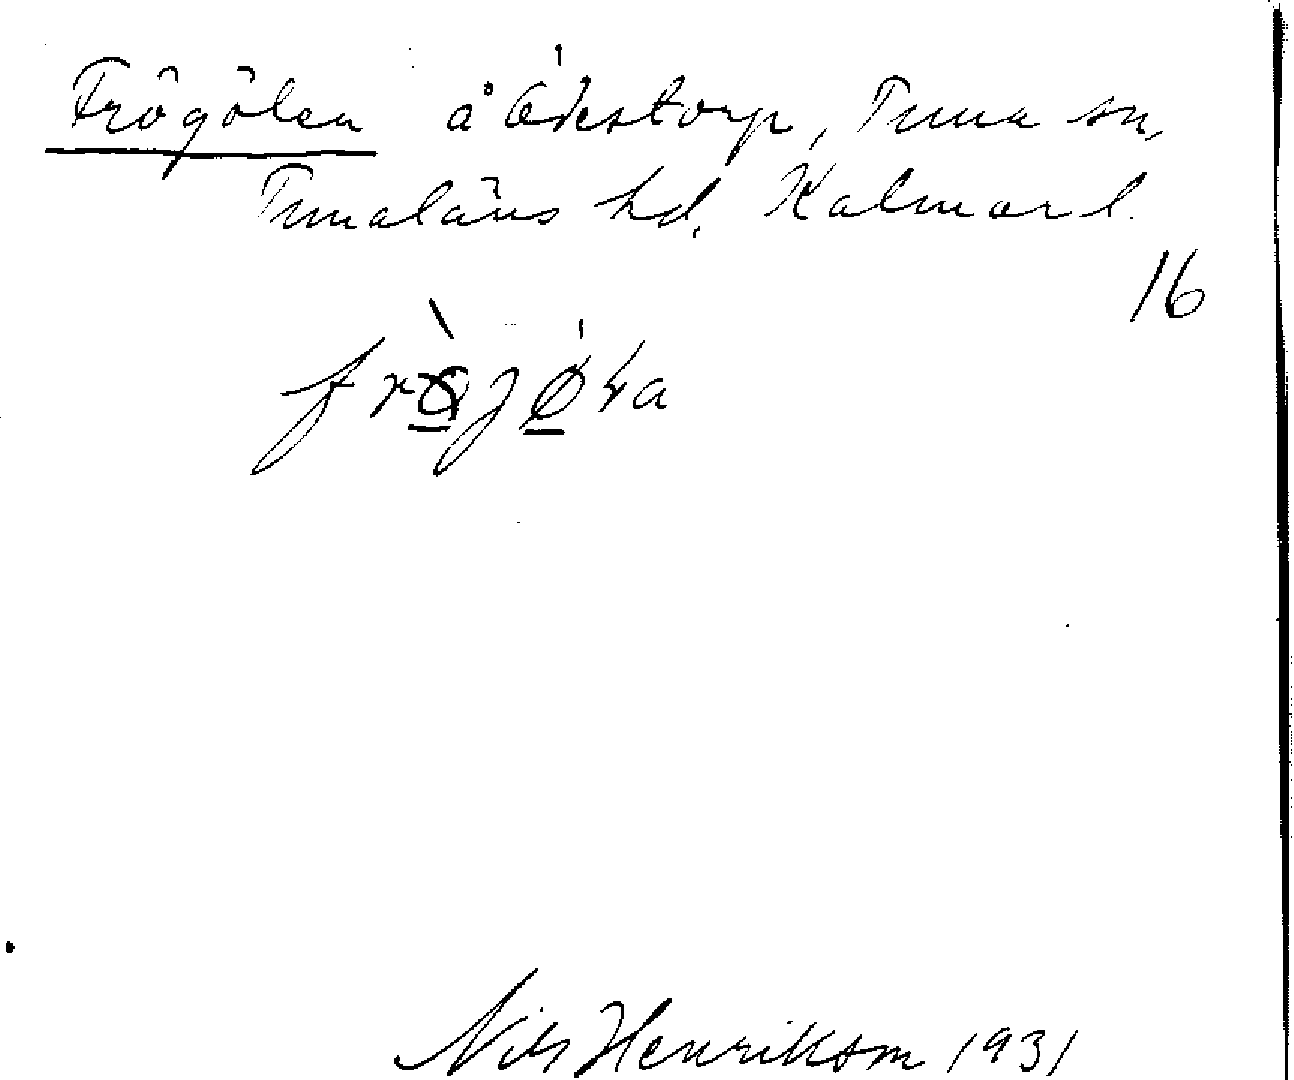 Frögölen å Ökstorp, Tuna sn,
Tunaläns hd, Kalmar l.
16
Nils Henrikson 1931